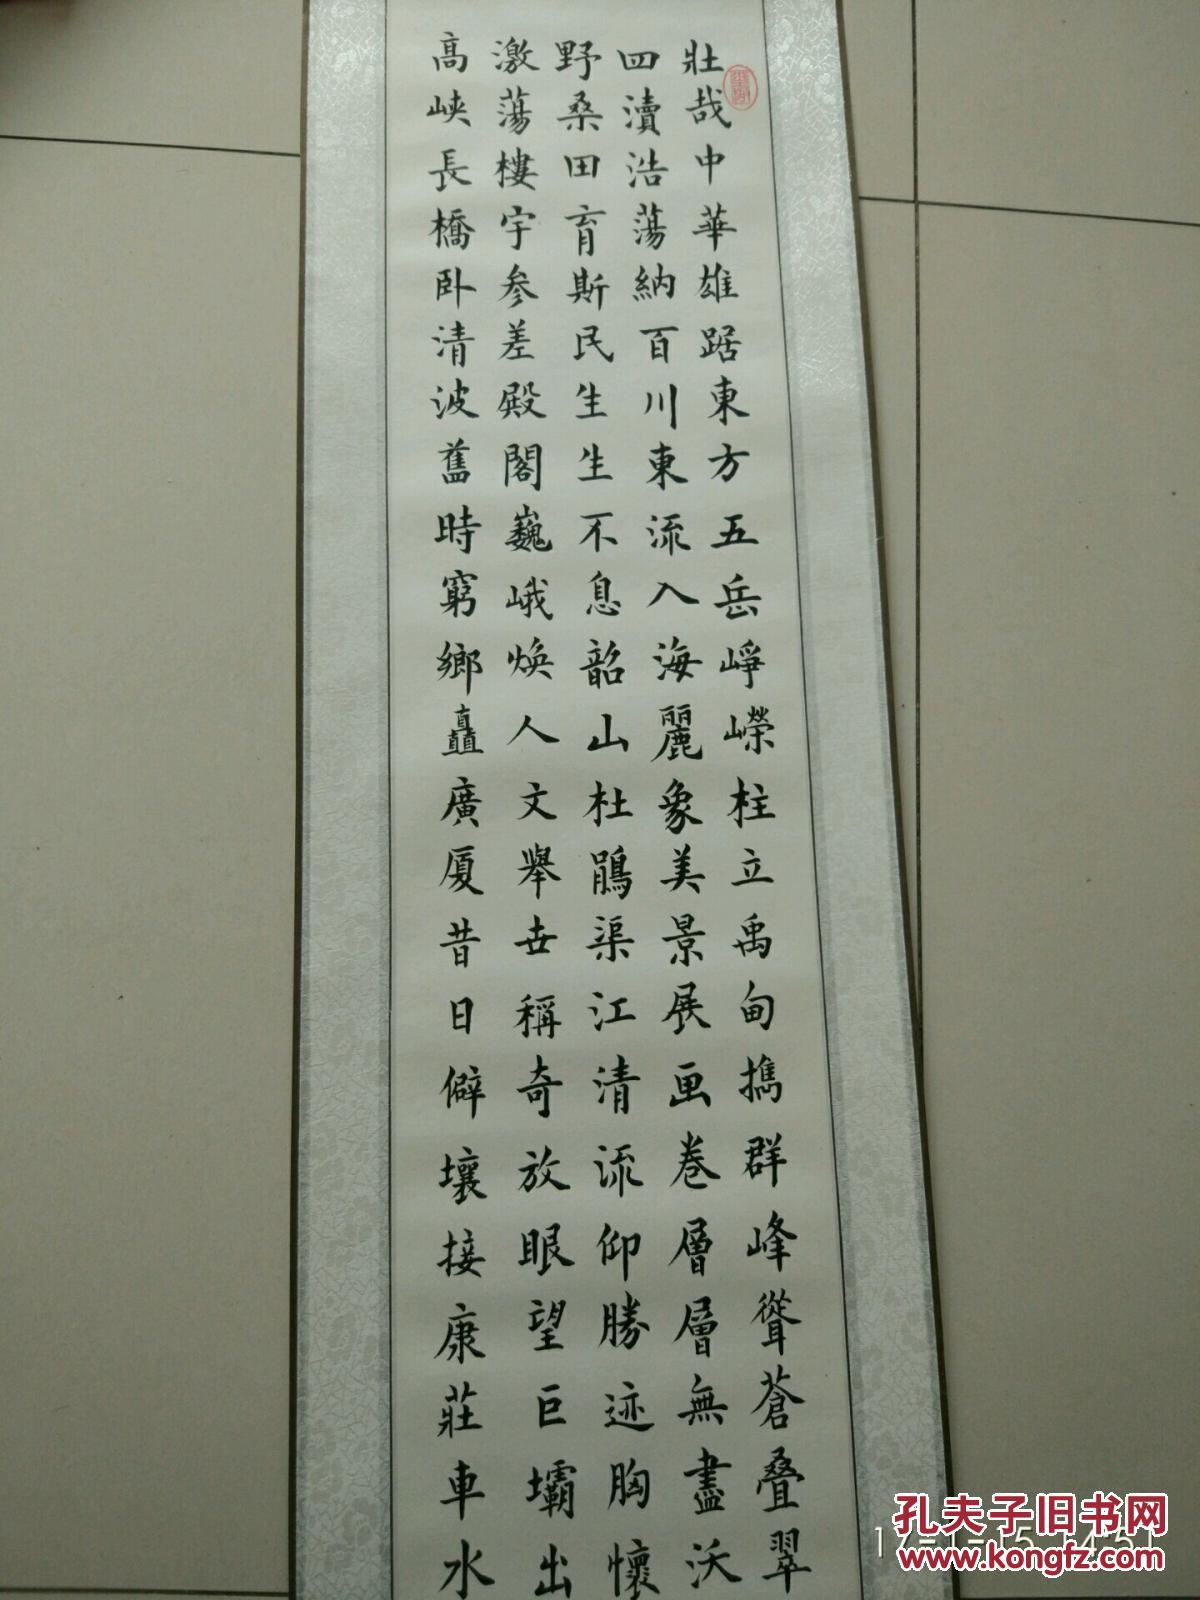 壯哉中華雄踞東方五岳崢嶸柱立禹甸擕群峰聳蒼叠翠
四瀆浩蕩納百川東流入海麗象美景展画卷層層無盡沃
野桑田育斯民生生不息韶山杜鵑渠江清流仰勝迹胸懷
激蕩樓宇参差殿閣巍峨焕人文舉世稱奇放眼望巨壩出
高峡長橋卧清波舊時窮鄉矗廣厦昔日僻壤接康莊車水
孔夫子旧书网
www.kongfz.com